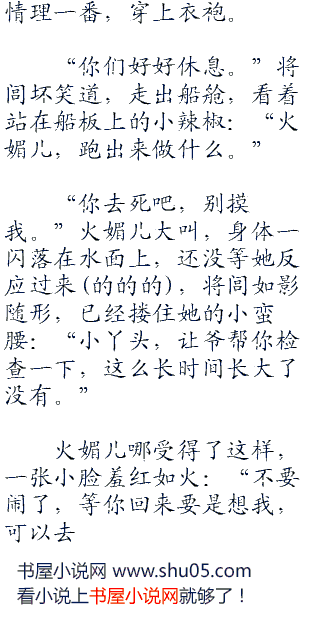 情理一番，穿上衣袍。
“你们好好休息。”将
闾坏笑道，走出船舱，看着
站在船板上的小辣椒：“火
媚儿，跑出来做什么。”
“你去死吧，别摸
我。”火媚儿大叫，身体一
闪落在水面上，还没等她反
应过来(的的的)，将闾如影
随形，已经搂住她的小蛮
腰：“小丫头，让爷帮你检
查一下，这么长时间长大了
没有。”
火媚儿哪受得了这样，
一张小脸羞红如火：“不要
闹了，等你回来要是想我，
可以去
书屋小说网 www.shu05.com
看小说上书屋小说网就够了！